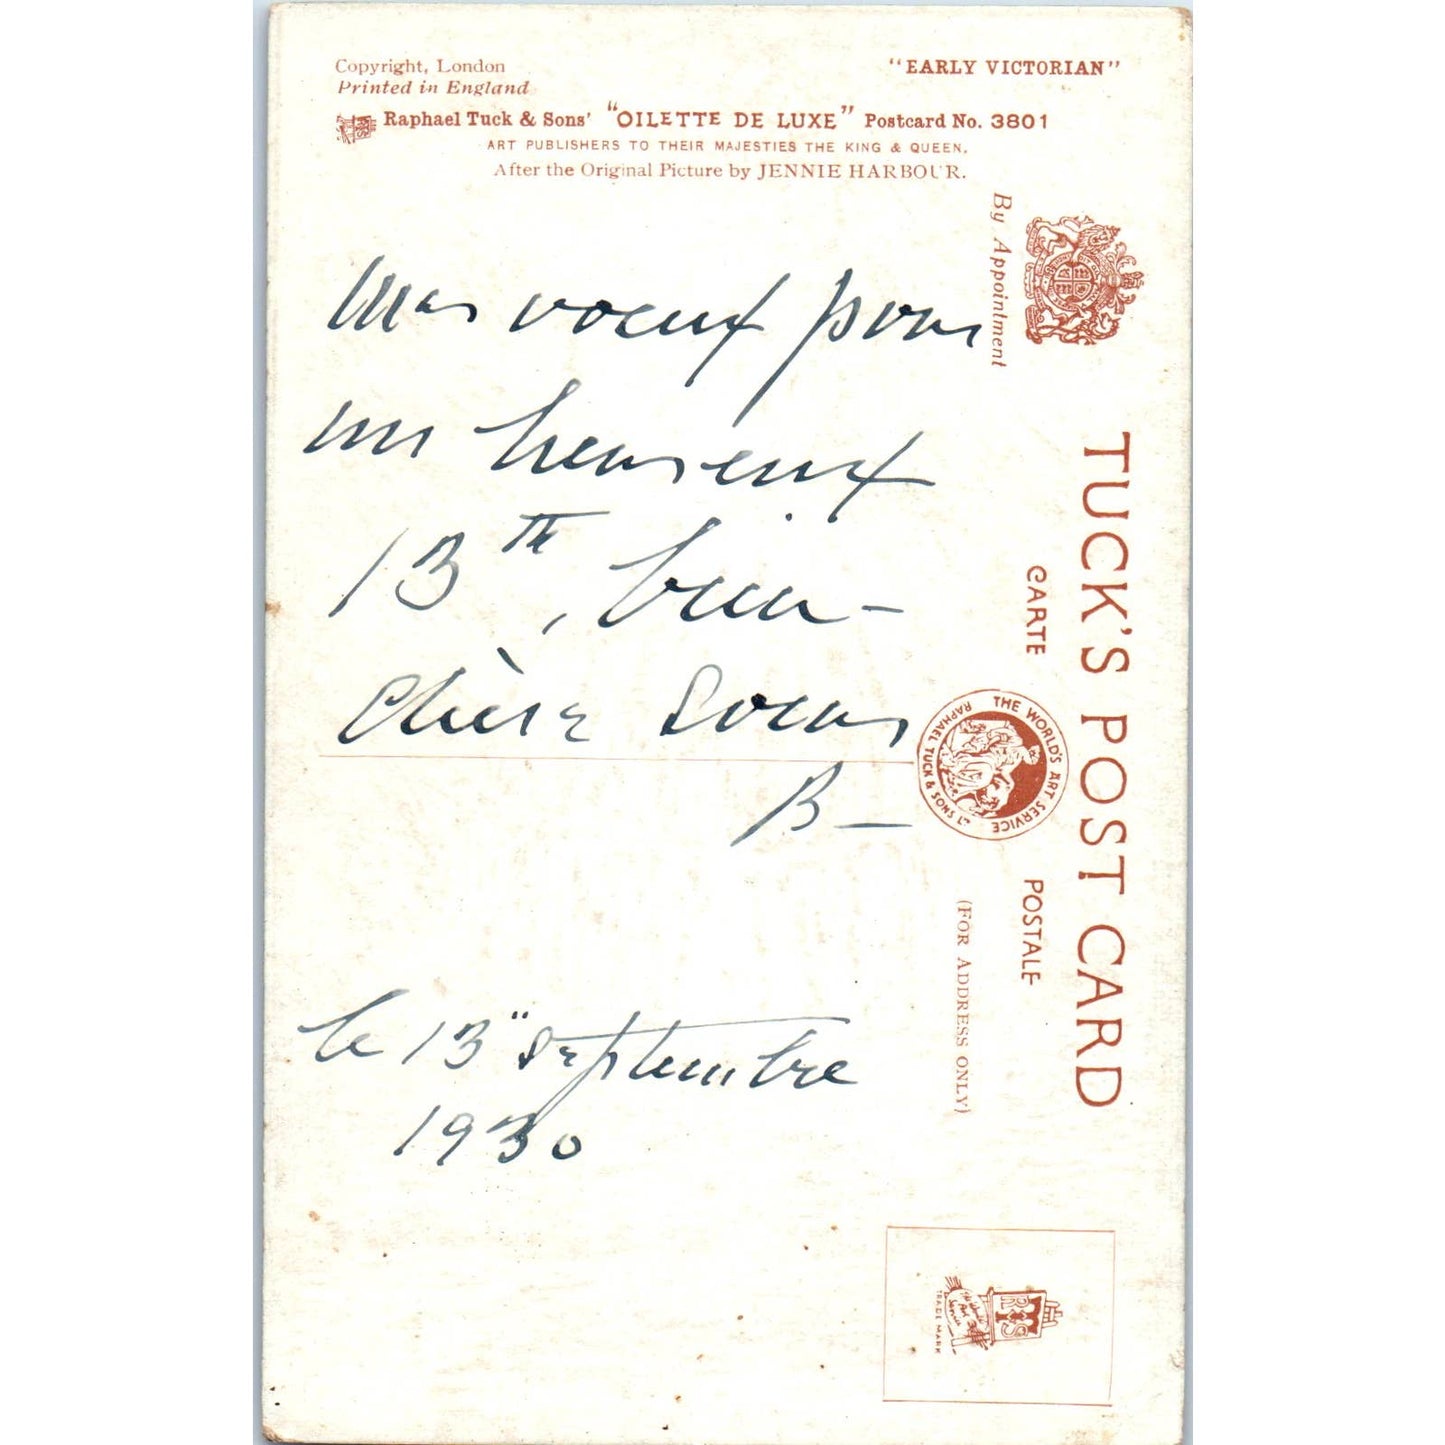 Copyright, London
Printed in England
"EARLY VICTORIAN"
Raphael Tuck & Sons' "OILETTE DE LUXE" Postcard No. 3801
ART PUBLISHERS TO THEIR MAJESTIES THE KING & QUEEN.
After the Original Picture by JENNIE HARBOUR.
By Appointment
TUCK'S POST CARD
CARTE POSTALE
THE WORLD'S ART SERVICE
RAPHAEL TUCK & SONS LD
(FOR ADDRESS ONLY)
Mes voeux pour
un heureux
13th, bien
chère Soeur
B —
le 13" Septembre
1930
RTS
TRADE MARK